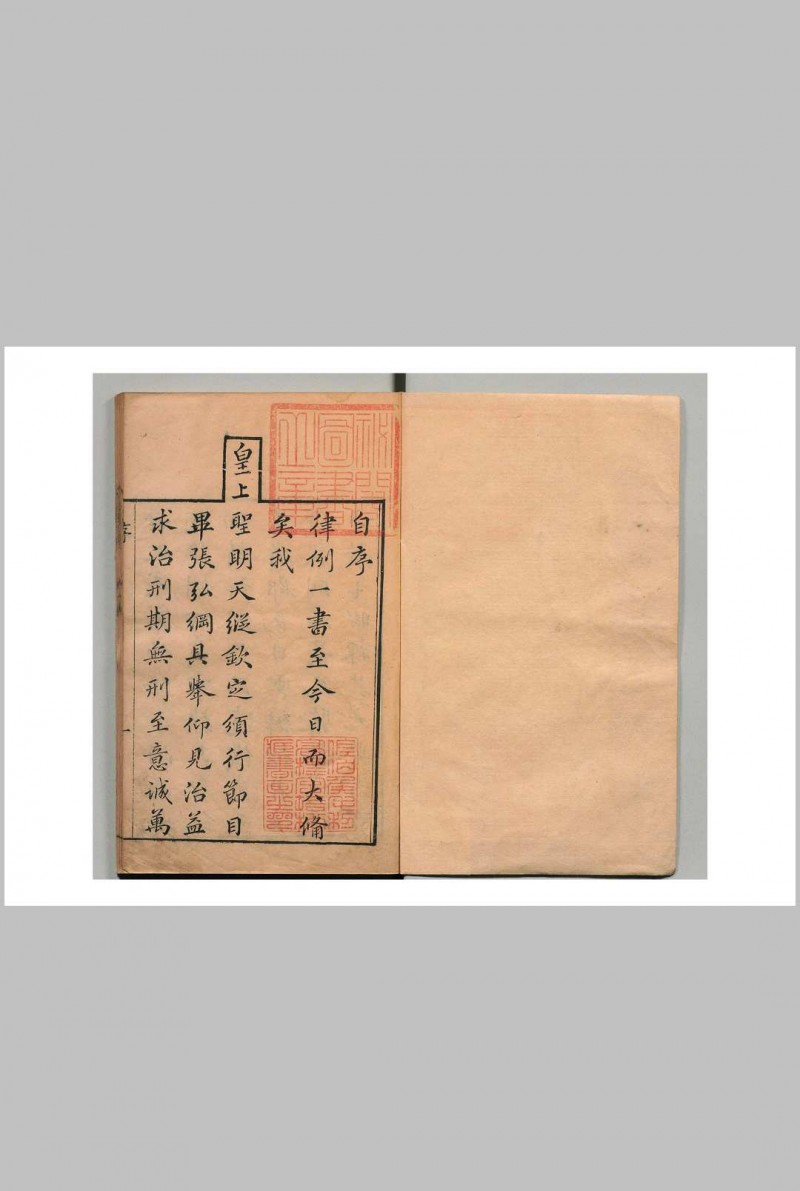 自序
律例一書至今日而大備
矣我
皇上
聖明天縱欽定須行節目
畢張弘綱具舉仰見治益
求治刑期無刑至意誠萬
序
一
秘閣圖書之章